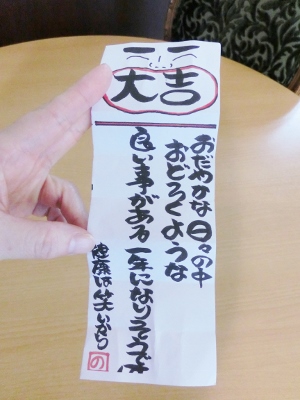 大吉
おだやかな日々の中
おどろくような
良い事がある一年になりそうです
健康は笑いから
の